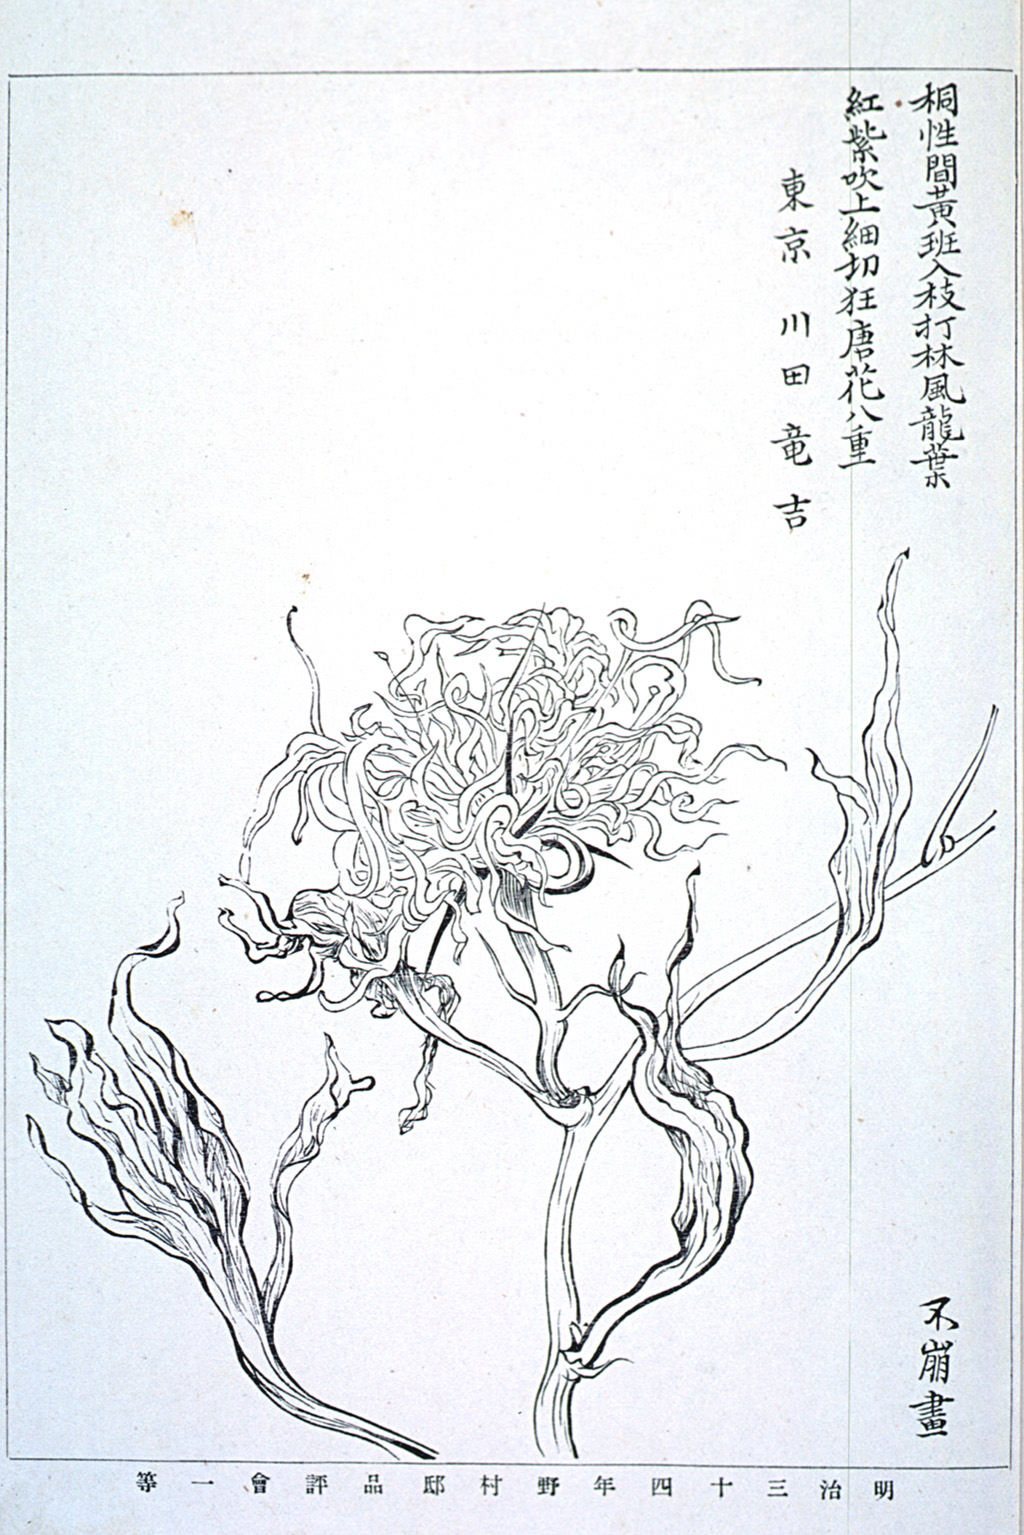 桐性間黄斑入枝打林風龍葉
紅紫吹上細切狂唐花八重
東京 川田竜吉
不崩畫
明治三十四年野村邸品評會一等